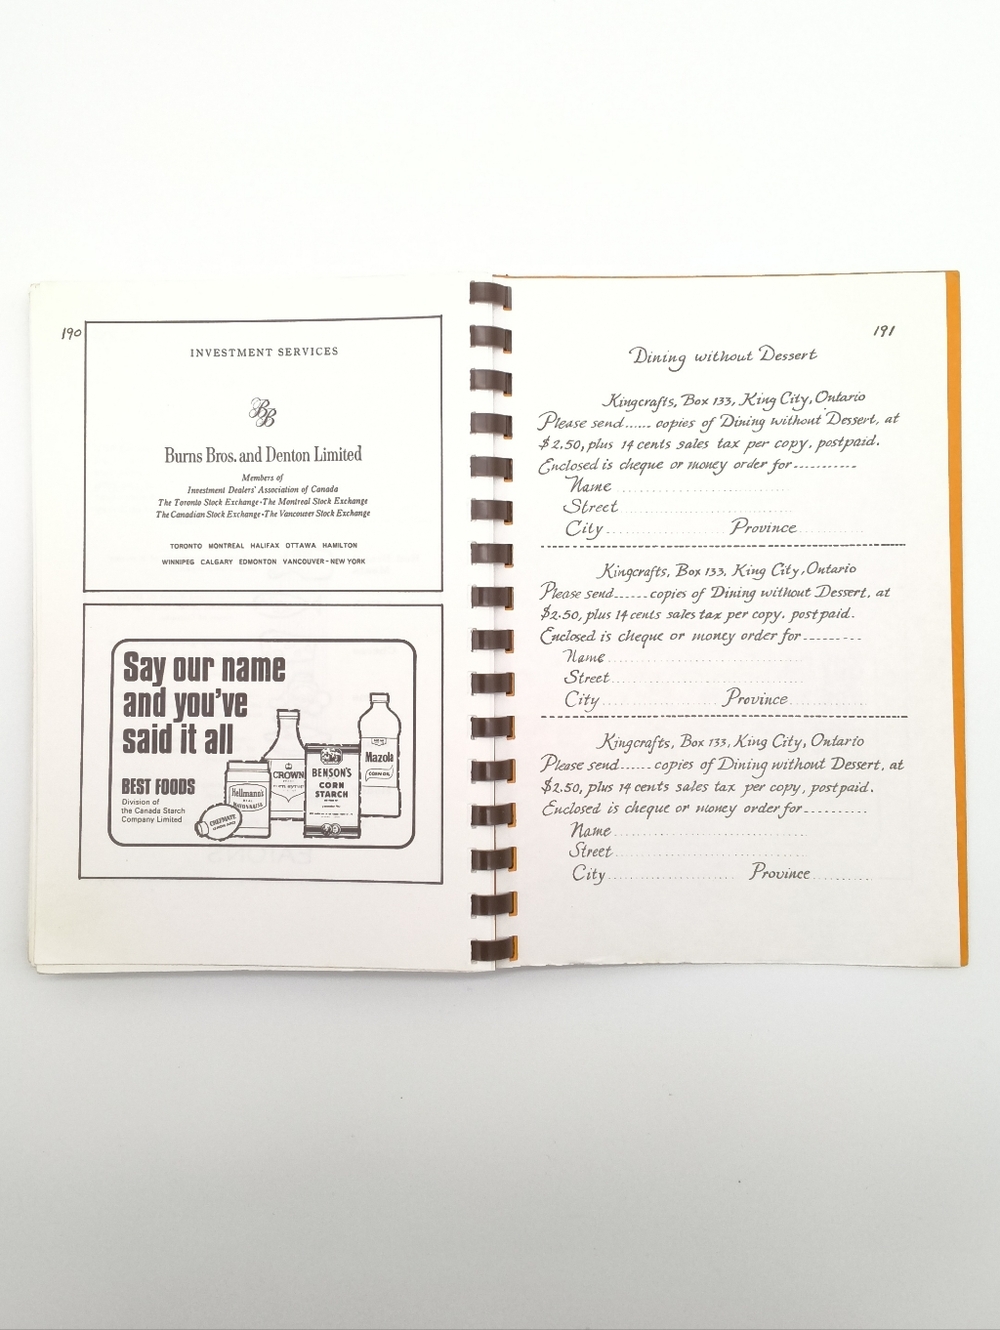 190
INVESTMENT SERVICES
BB
Burns Bros. and Denton Limited
Members of
Investment Dealers' Association of Canada
The Toronto Stock Exchange·The Montreal Stock Exchange
The Canadian Stock Exchange·The Vancouver Stock Exchange
TORONTO MONTREAL HALIFAX OTTAWA HAMILTON
WINNIPEG CALGARY EDMONTON VANCOUVER-NEW YORK
Say our name
and you've
said it all
BEST FOODS
Division of
the Canada Starch
Company Limited
Hellmann's
REAL
MAYONNAISE
CROWN
BENSON'S
CORN
STARCH
Mazola
CORN OIL
191
Dining without Dessert
Kingcrafts, Box 133, King City, Ontario
Please send...... copies of Dining without Dessert, at
$2.50, plus 14 cents sales tax per copy, postpaid.
Enclosed is cheque or money order for-----------
Name
Street
City Province
Kingcrafts, Box 133, King City, Ontario
Please send...... copies of Dining without Dessert, at
$2.50, plus 14 cents sales tax per copy. postpaid.
Enclosed is cheque or money order for---------
Name
Street
City Province
Kingcrafts, Box 133, King City, Ontario
Please send...... copies of Dining without Dessert, at
$2.50, plus 14 cents sales tax per copy, postpaid.
Enclosed is cheque or money order for----------
Name
Street
City Province